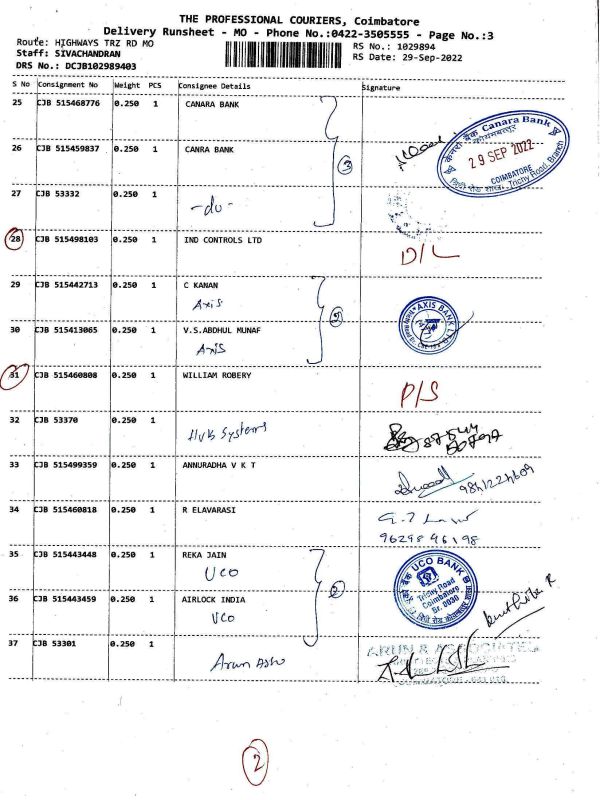 THE PROFESSIONAL COURIERS, Coimbatore
Delivery Runsheet - MO - Phone No.:0422-3505555 - Page No.:3
Route: HIGHWAYS TRZ RD MO
RS No.: 1029894
Staff: SIVACHANDRAN
RS Date: 29-Sep-2022
DRS No.: DCJB102989403
S No Consignment No Weight PCS Consignee Details Signature
25 CJB 515468776 0.250 1 CANARA BANK
केनरा बैंक Canara Bank
कोयम्बत्तूर
29 SEP 2022
COIMBATORE
Trichy Road, Branch
26 CJB 515459837 0.250 1 CANRA BANK
3
27 CJB 53332 0.250 1
-do-
28 CJB 515498103 0.250 1 IND CONTROLS LTD
D/L
29 CJB 515442713 0.250 1 C KANAN
Axis
AXIS BANK LTD
30 CJB 515413065 0.250 1 V.S.ABDHUL MUNAF
Axis
31 CJB 515460808 0.250 1 WILLIAM ROBERY
P/S
32 CJB 53370 0.250 1
HVK Systems
33 CJB 515499359 0.250 1 ANNURADHA V K T
34 CJB 515460818 0.250 1 R ELAVARASI
9629896198
35 CJB 515443448 0.250 1 REKA JAIN
UCO
UCO BANK
Trichy Road
Coimbatore
Br. 0030
36 CJB 515443459 0.250 1 AIRLOCK INDIA
UCO
37 CJB 53301 0.250 1
Arun Asso
ARUN & ASSOCIATES
2